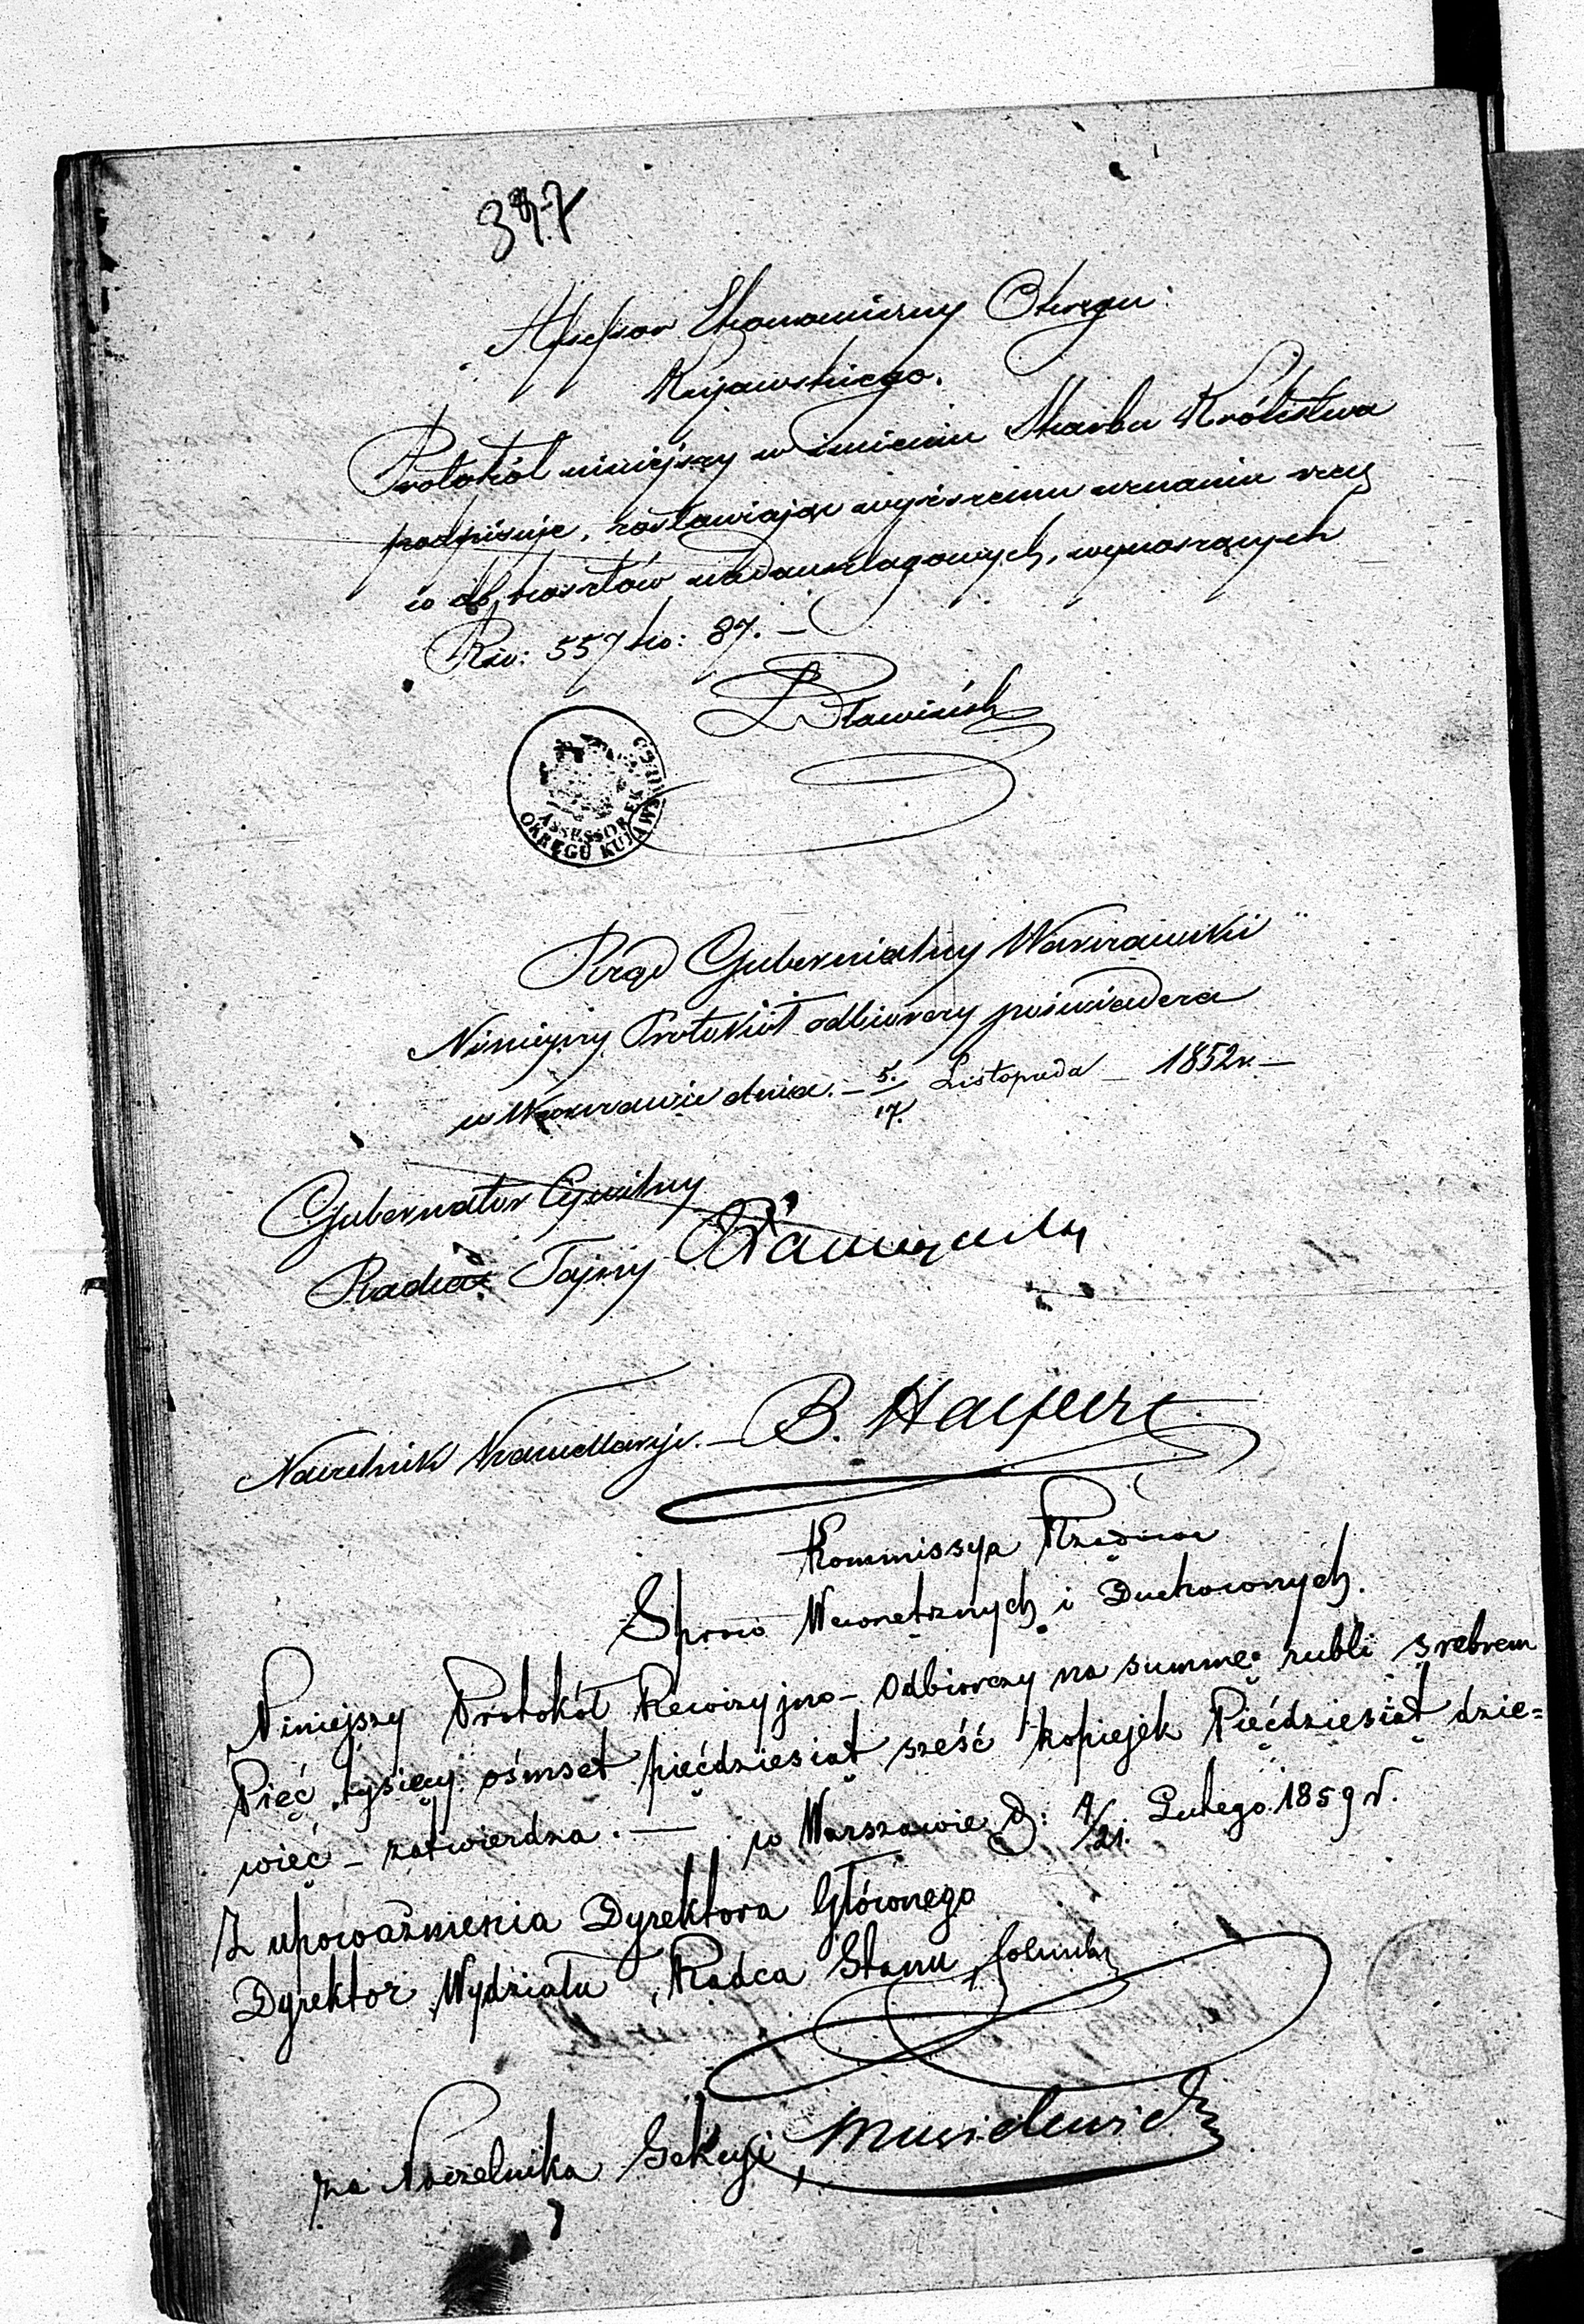 347
Assessor Ekonomiczny Okręgu
Kujawskiego.
Protokół niniejszy w imieniu Skarbu Królestwa
podpisuje, zostawiając wyższemu uznaniu rzecz
co do kosztów nadanszlagowych, wynoszących
Rsr: 557 ko: 87. —
ASSESSOR EK
OKRĘGU KUJAWSKIEGO
Rząd Gubernialny Warszawski
Niniejszy Protokół odbiorczy poświadcza
w Warszawie dnia. — 5./17. Listopada — 1852 r. —
Gubernator Cywilny
Radca Tajny
Naczelnik Kancellaryi. — B. Halpert
Kommissya Rządowa
Spraw Wewnętrznych i Duchownych.
Niniejszy Protokół Rewizyjno-Odbiorczy na summę rubli srebrem
Pięć tysięcy ośmset pięćdziesiąt sześć kopiejek Pięćdziesiąt dzie=
więć — zatwierdza. — w Warszawie d: 9/21. Lutego 1859 r.
Z upoważnienia Dyrektora Głównego
Dyrektor Wydziału, Radca Stanu
za Naczelnika Sekcyi